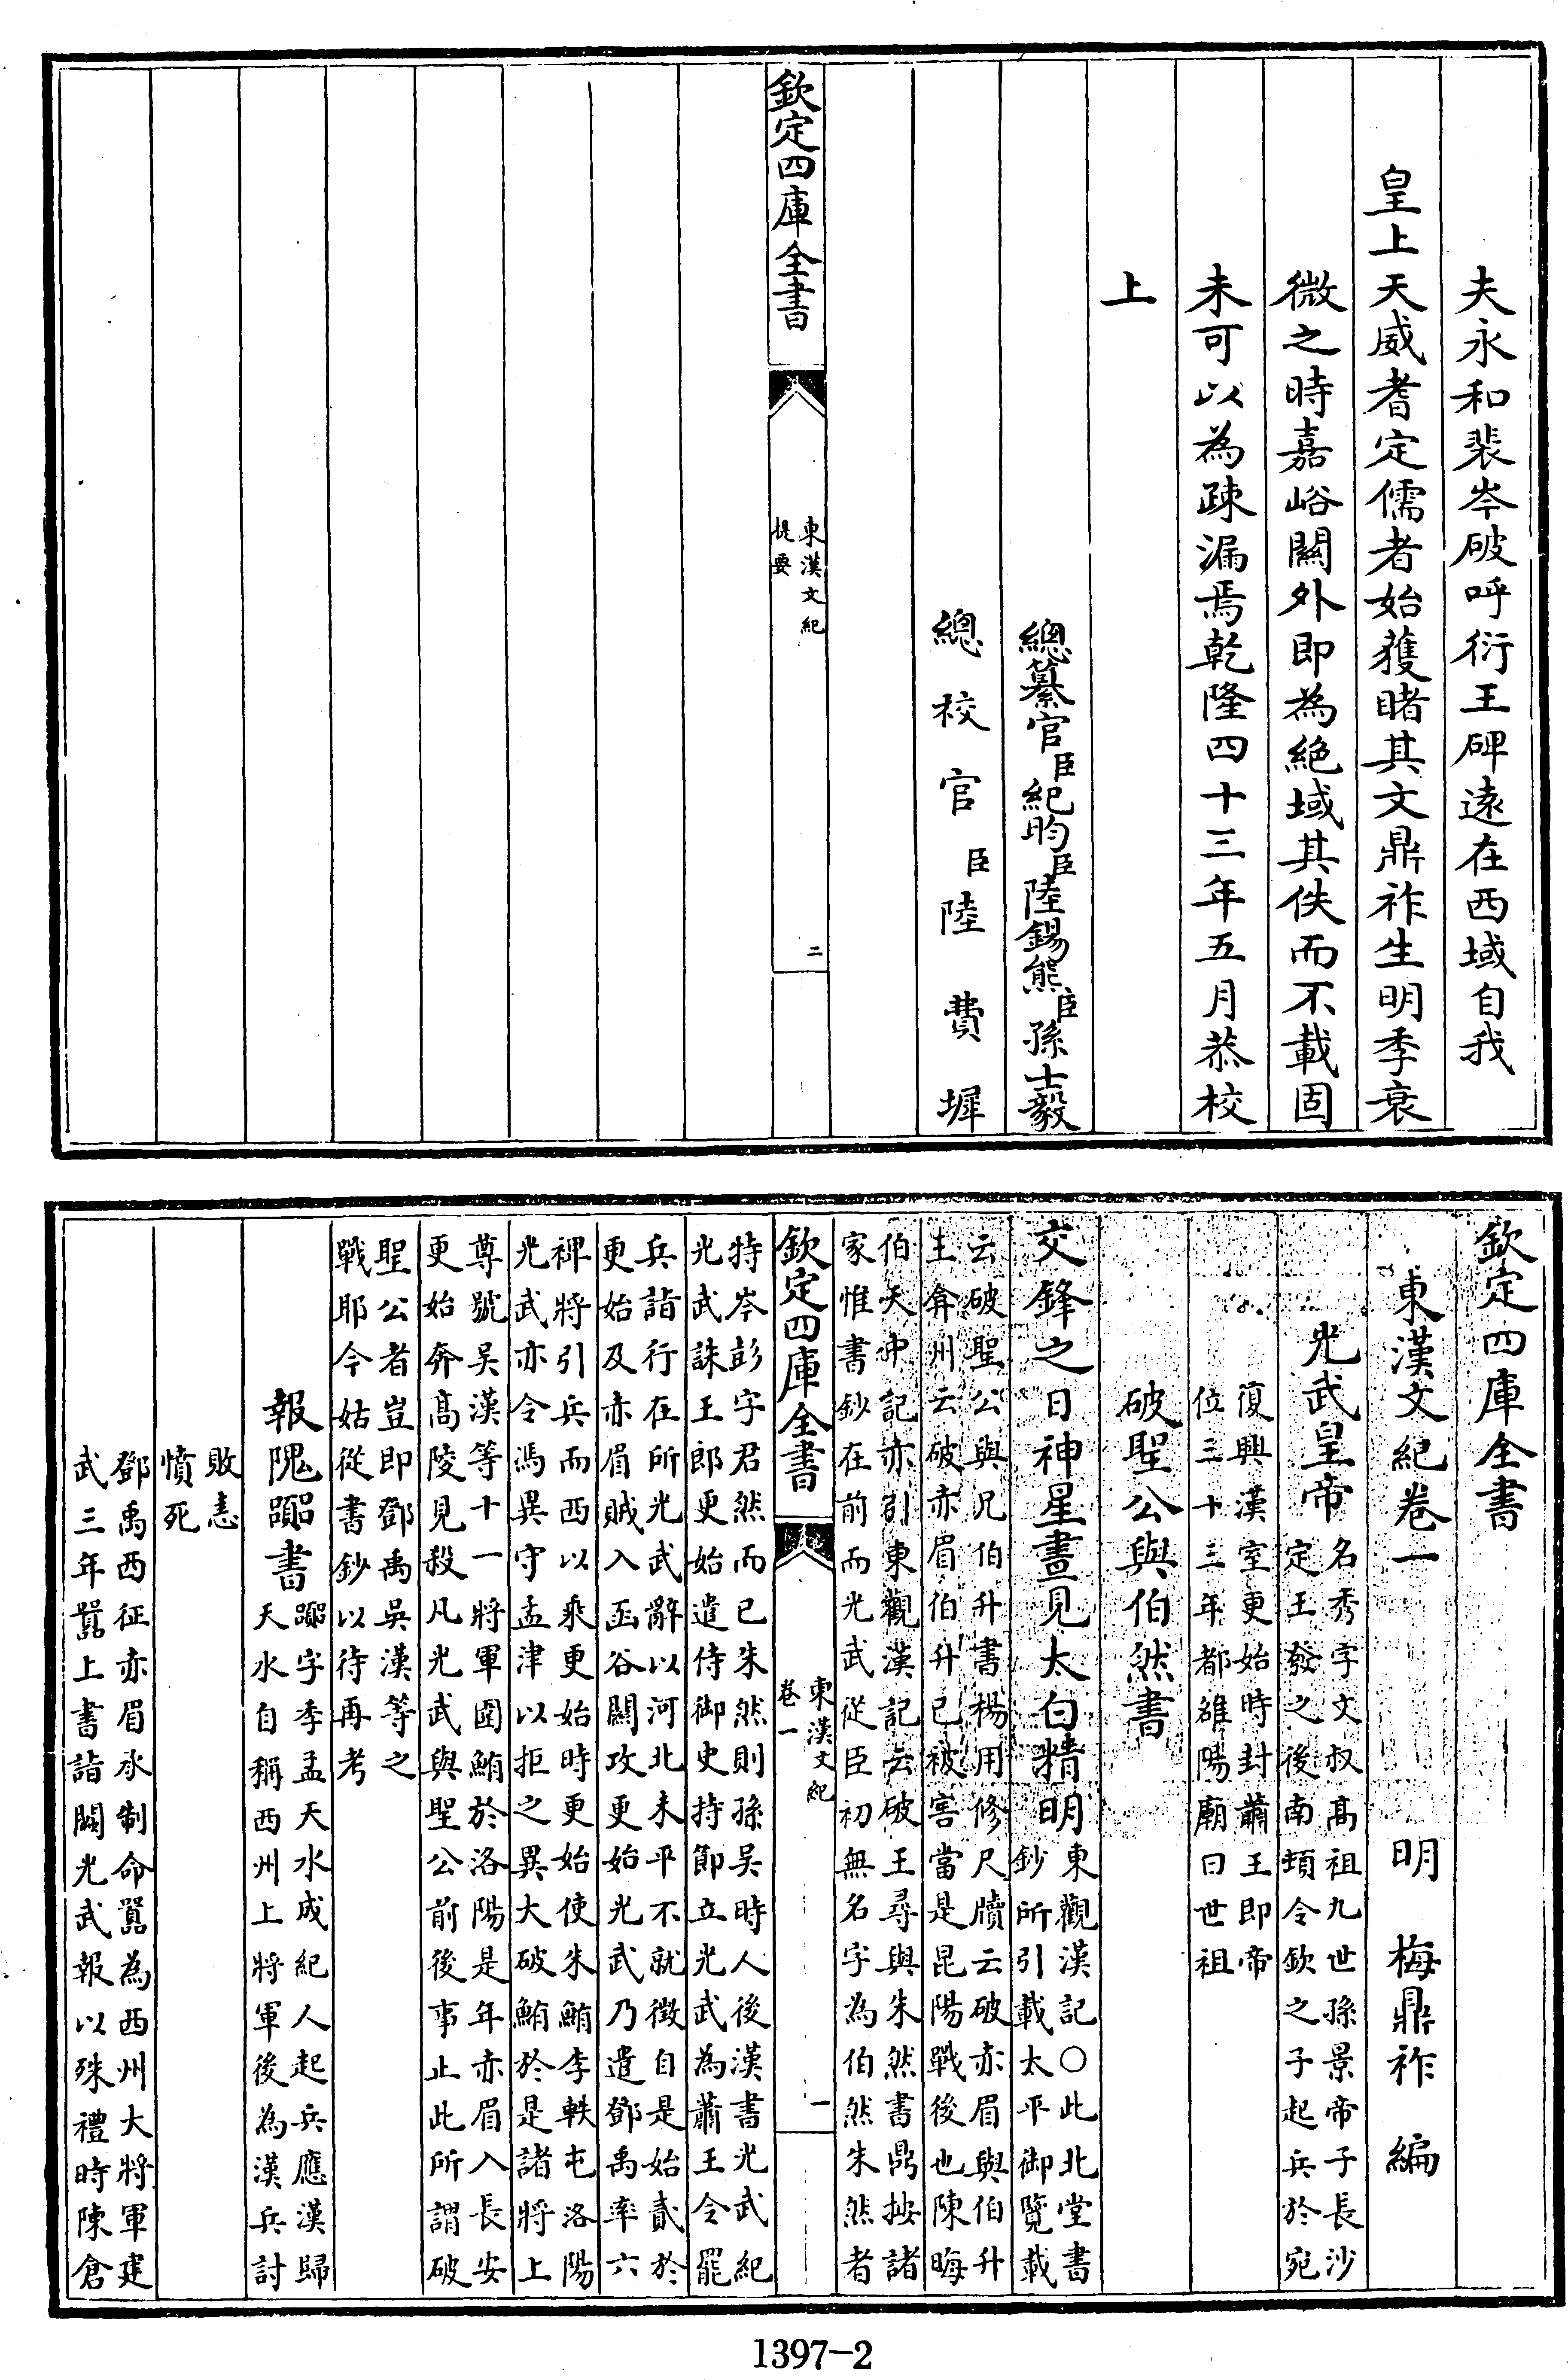 夫永和裴岑破呼衍王碑遠在西域自我
皇上天威耆定儒者始獲睹其文鼎祚生明季衰
微之時嘉峪關外即為絶域其佚而不載固
未可以為疎漏焉乾隆四十三年五月恭校
上
總纂官臣紀昀臣陸錫熊臣孫士毅
總校官臣陸費墀
欽定四庫全書
東漢文紀
提要
二
欽定四庫全書
東漢文紀卷一
明 梅鼎祚 編
光武皇帝
名秀字文叔髙祖九世孫景帝子長沙
定王發之後南頓令欽之子起兵於宛
復興漢室更始時封蕭王即帝
位三十三年都雒陽廟曰世祖
破聖公與伯然書
交鋒之日神星晝見太白精明
東觀漢記○此北堂書
鈔所引載太平御覽載
云破聖公與兄伯升書楊用修尺牘云破赤眉與伯升
王弇州云破赤眉伯升已被害當是昆陽戰後也陳晦
伯天中記亦引東觀漢記云破王尋與朱然書鼎按諸
家惟書鈔在前而光武從臣初無名字為伯然朱然者
欽定四庫全書
東漢文紀
卷一
一
特岑彭字君然而已朱然則孫吳時人後漢書光武紀
光武誅王郎更始遣侍御史持節立光武為蕭王令罷
兵詣行在所光武辭以河北未平不就徴自是始貳於
更始及赤眉賊入函谷關攻更始光武乃遣鄧禹率六
裨將引兵而西以乘更始時更始使朱鮪李軼屯洛陽
光武亦令馮異守孟津以拒之異大破鮪於是諸將上
尊號吳漢等十一將軍圍鮪於洛陽是年赤眉入長安
更始奔髙陵見殺凡光武與聖公前後事止此所謂破
聖公者豈即鄧禹吳漢等之
戰耶今姑從書鈔以待再考
報隗囂書
囂字季孟天水成紀人起兵應漢歸
天水自稱西州上將軍後為漢兵討
敗恚
憤死
鄧禹西征赤眉承制命囂為西州大將軍建
武三年囂上書詣闕光武報以殊禮時陳倉
1397-2